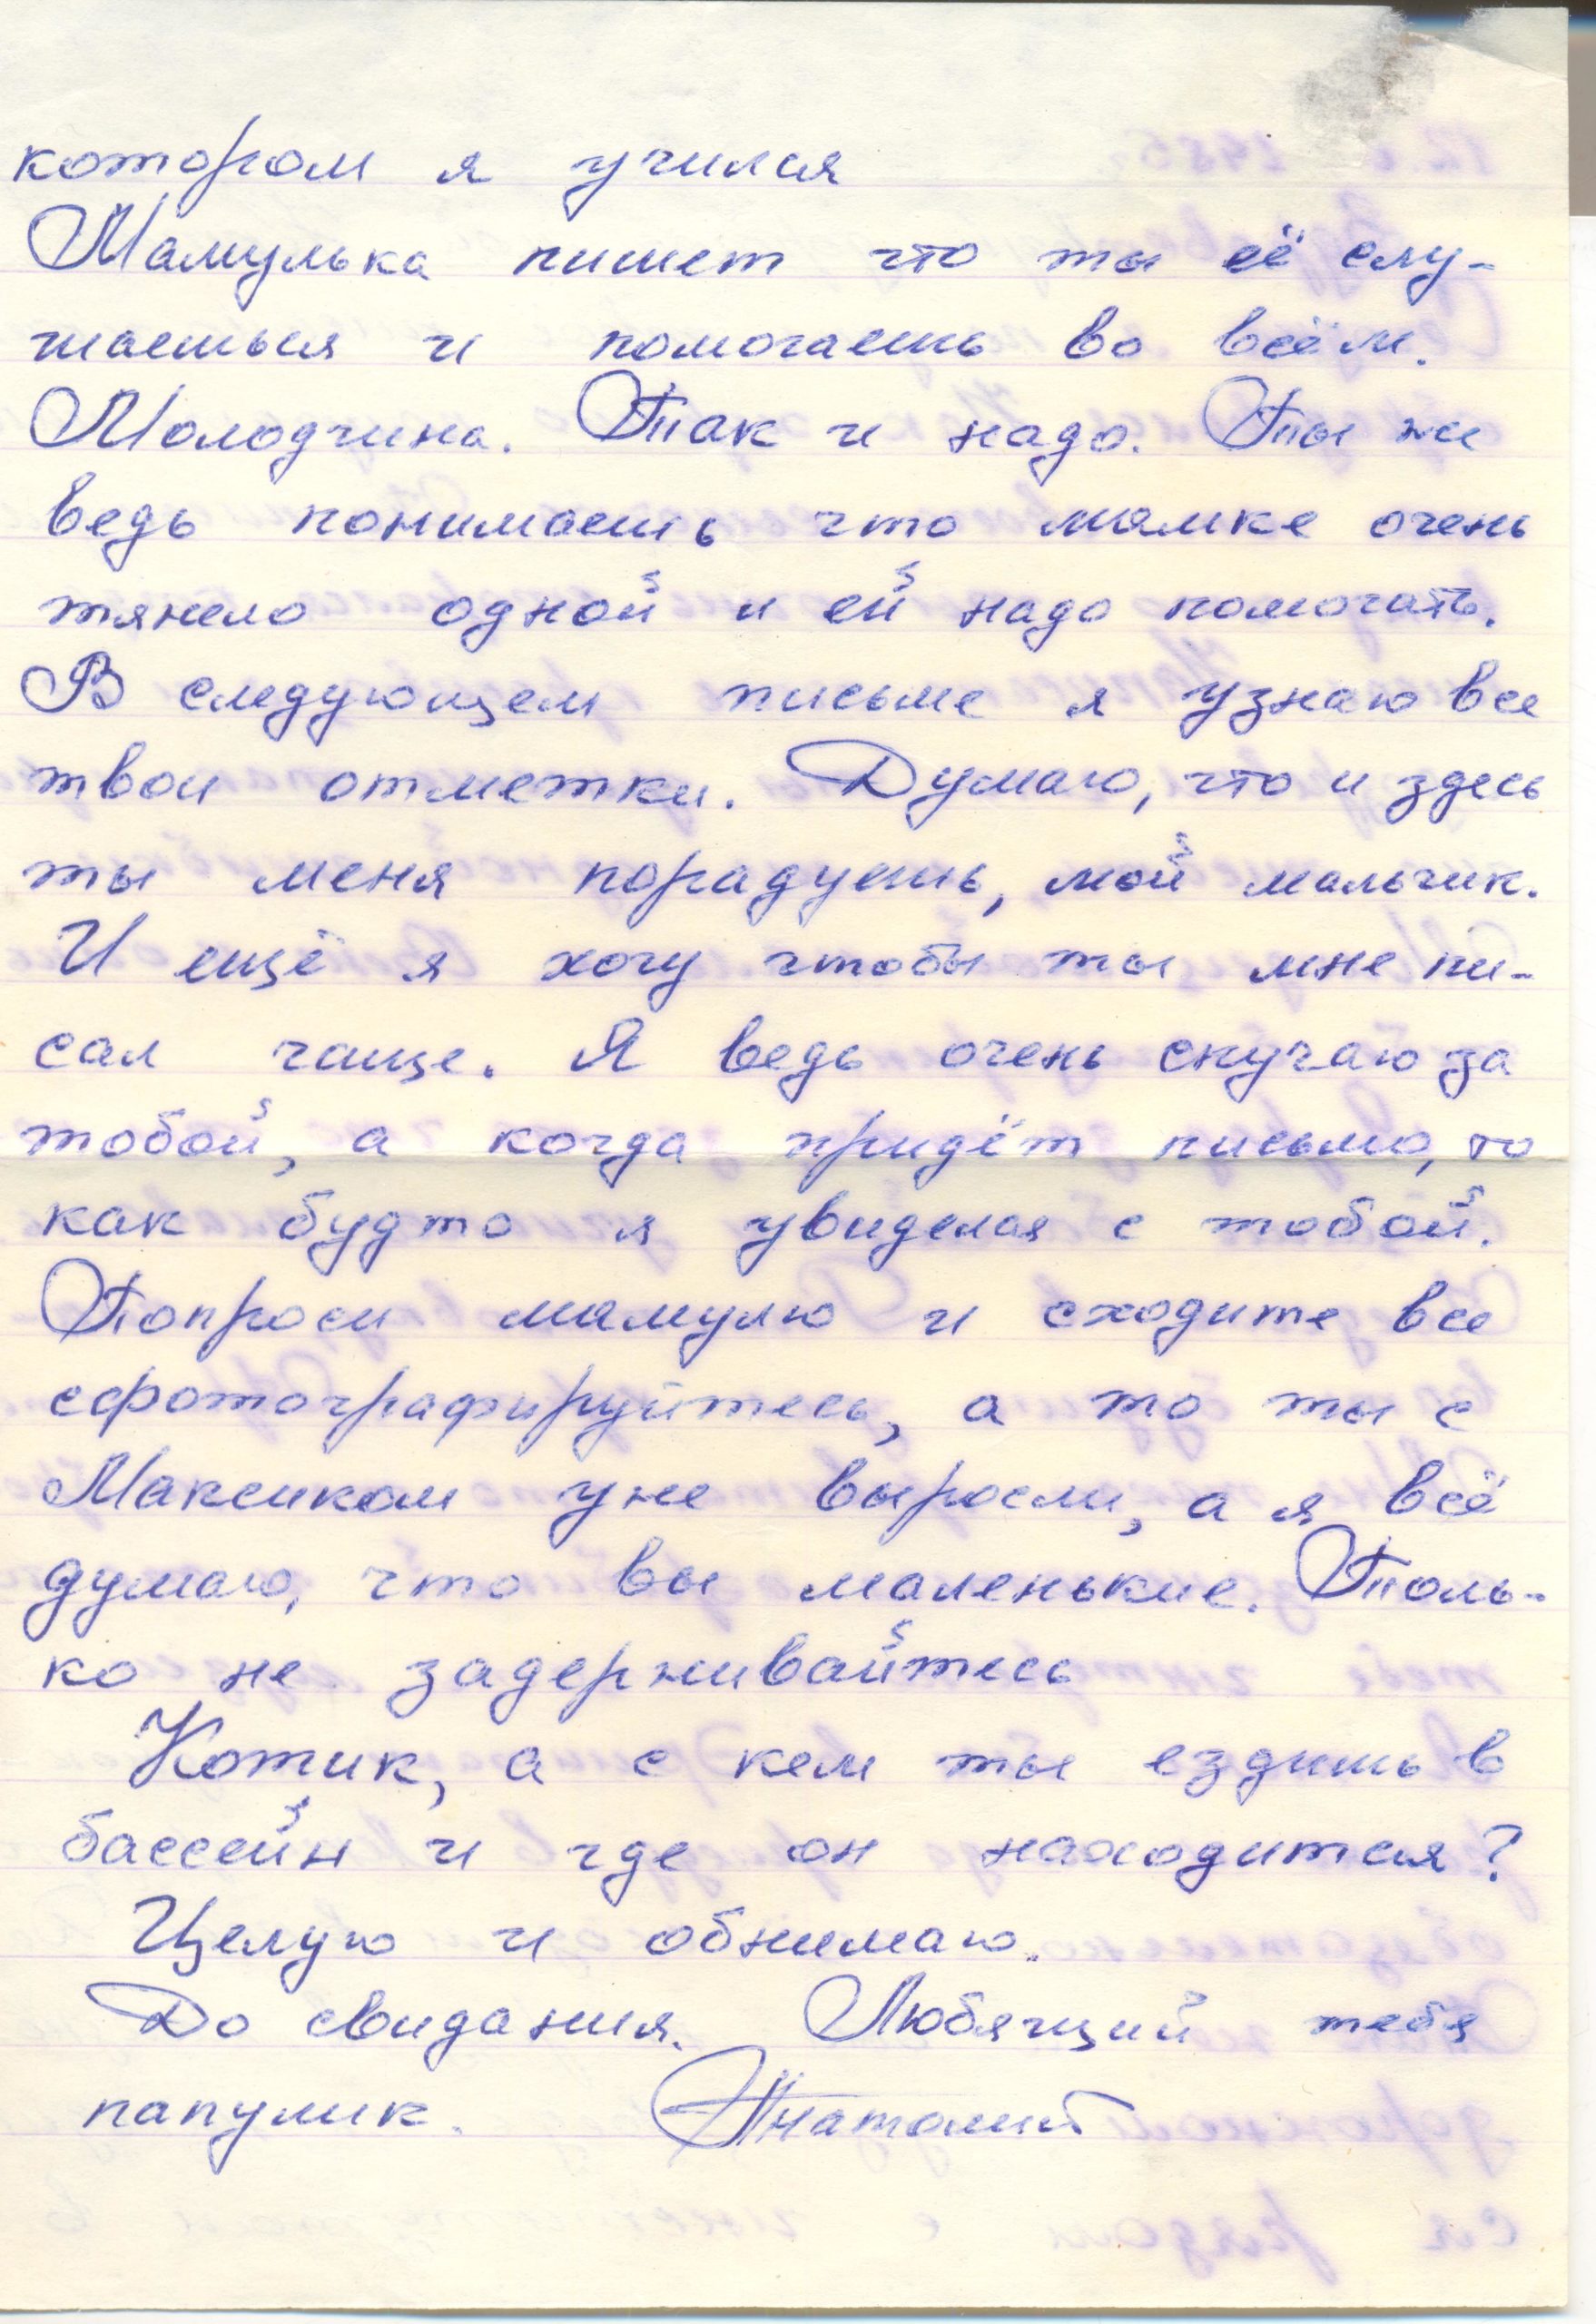 котором я учился
Мамулька пишет что ты её слу-
шаешься и помогаешь во всём.
Молодчина. Так и надо. Ты же
ведь понимаешь что мамке очень
тяжело одной и ей надо помогать.
В следующем письме я узнаю все
твои отметки. Думаю, что и здесь
ты меня порадуешь, мой мальчик.
И ещё я хочу чтобы ты мне пи-
сал чаще. Я ведь очень скучаю за
тобой, а когда придёт письмо, то
как будто я увиделся с тобой.
Попроси мамулю и сходите все
сфотографируйтесь, а то ты с
Максиком уже выросли, а я всё
думаю, что вы маленькие. Толь-
ко не задерживайтесь
Котик, а с кем ты ездишь в
бассейн и где он находится?
Целую и обнимаю.
До свидания. Любящий тебя
папулик. Анатолий